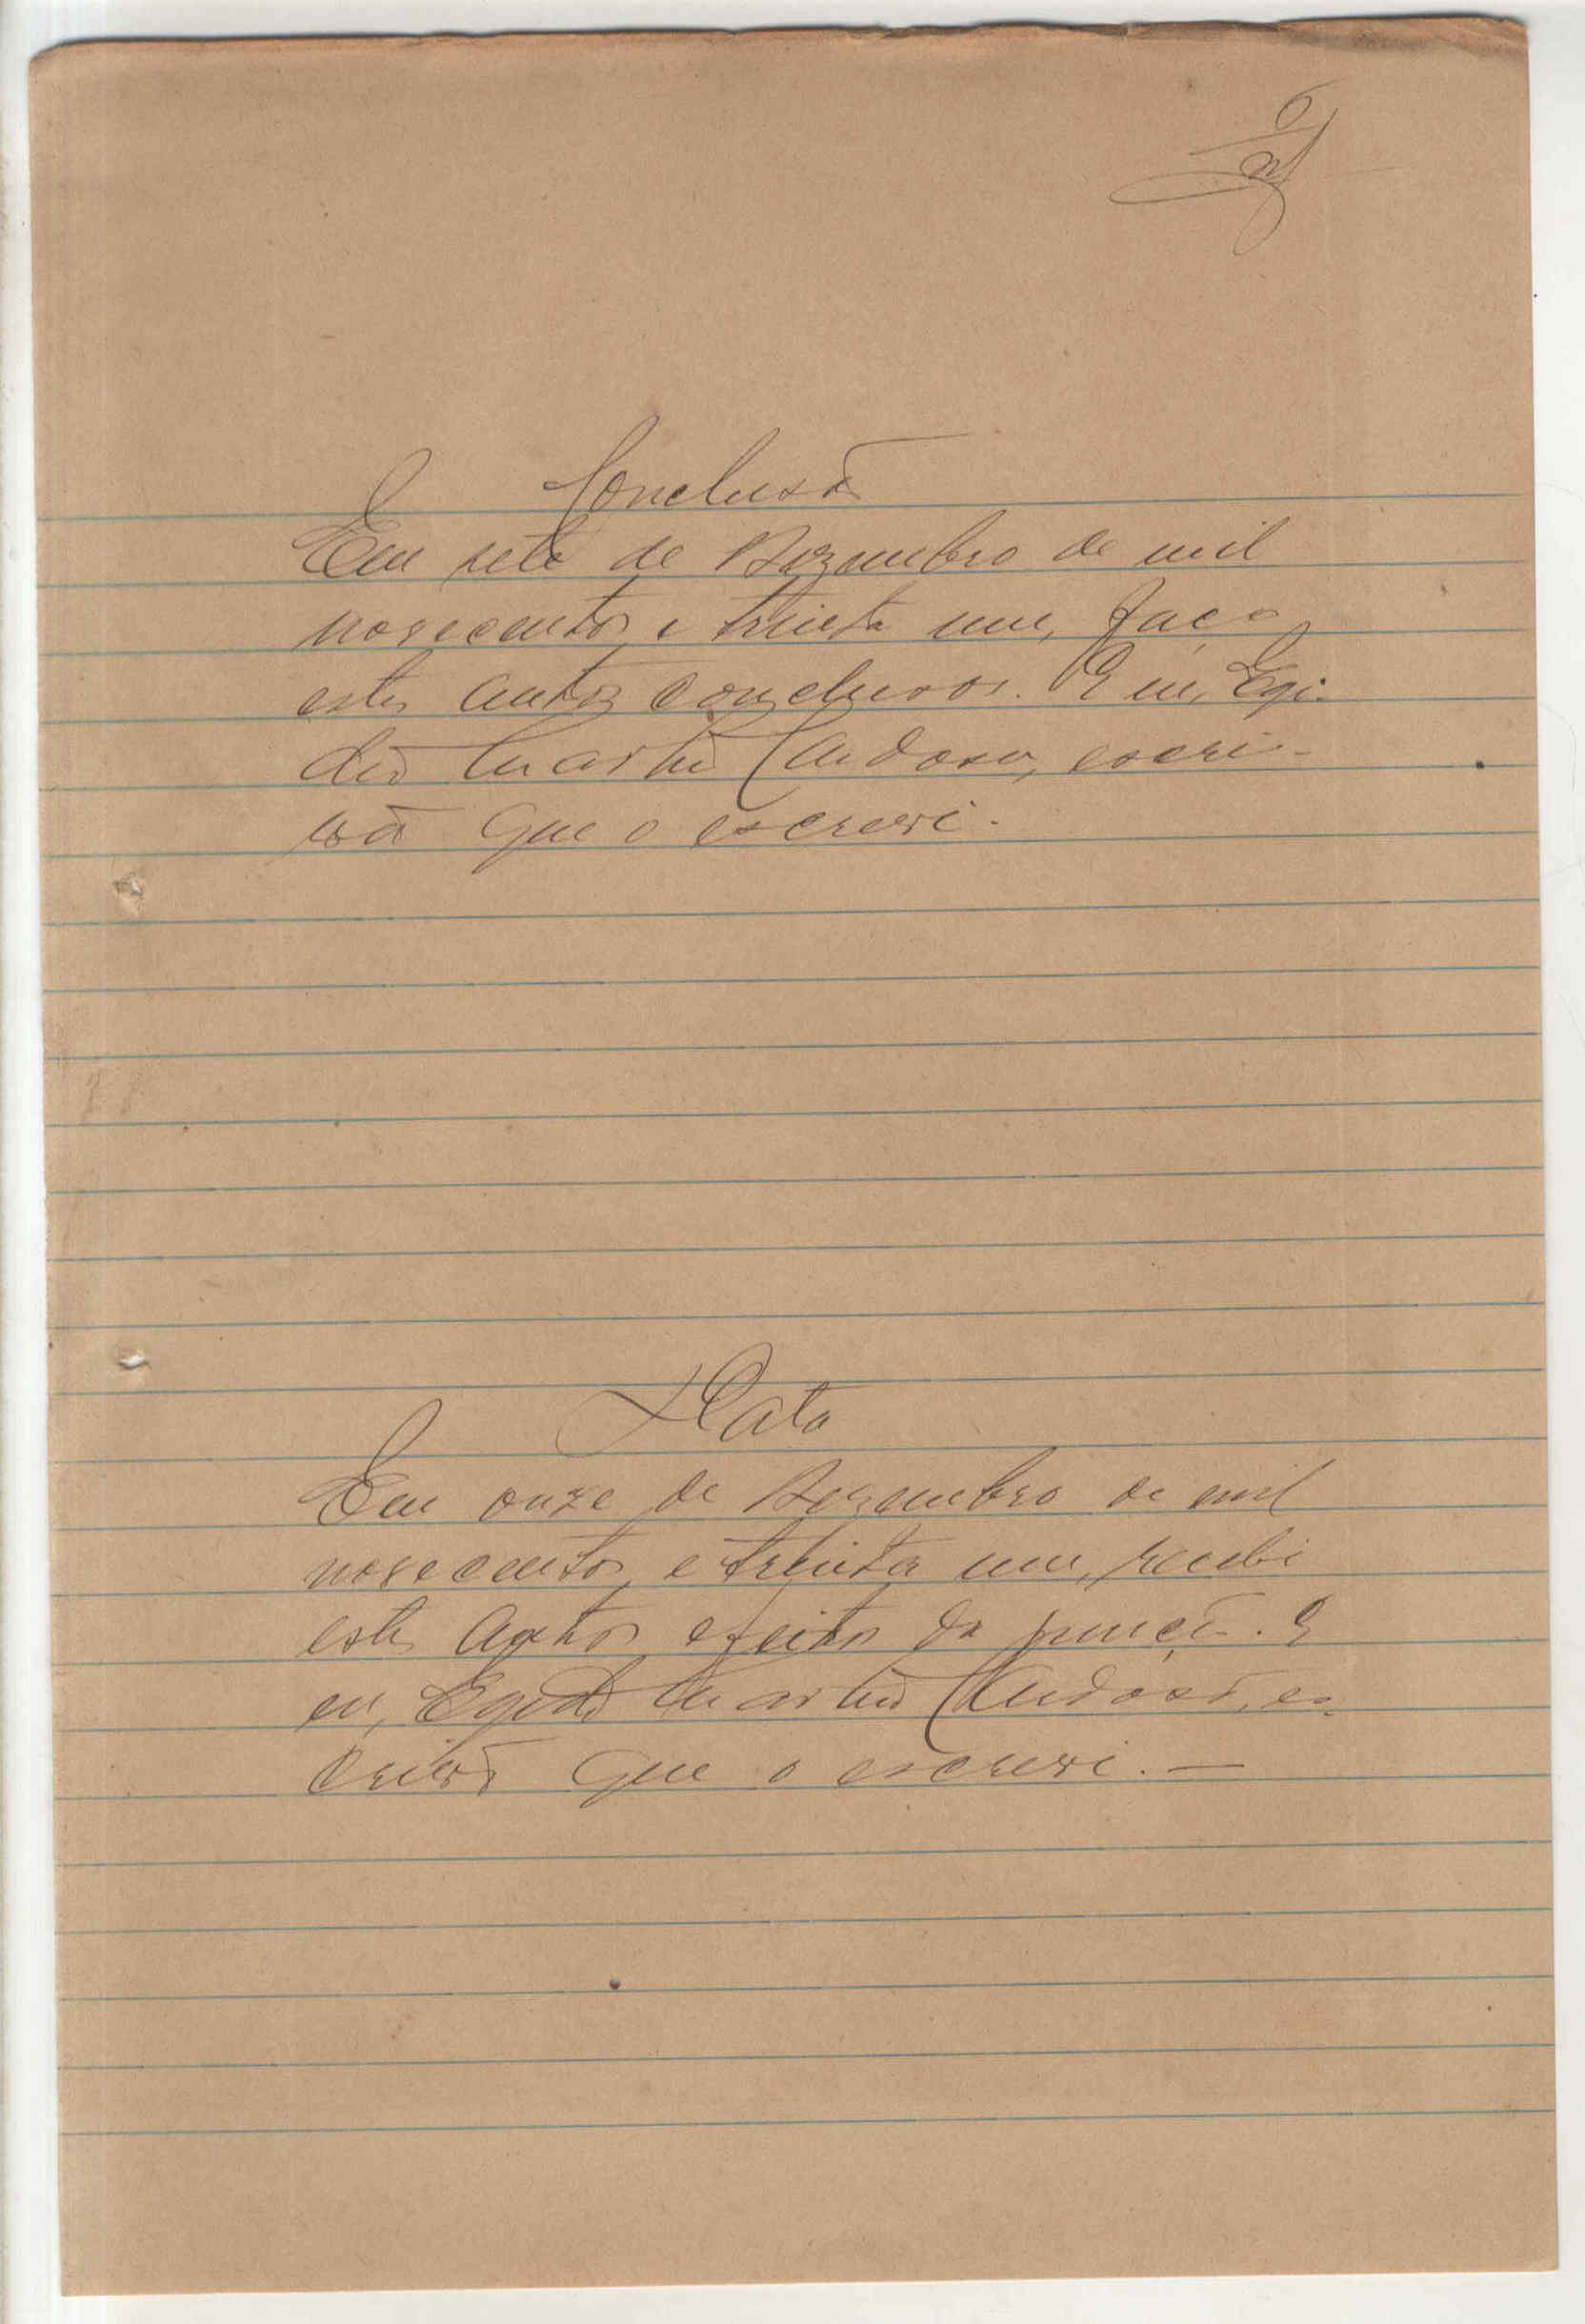 6
Conclusão
Em sete de Dezembro de mil
novecentos e trinta um, faço
estes autos conclusos. E eu, Egi-
dio Martins Cardoso, escri-
vão que o escrevi.
Data
Em onze de Dezembro de mil
novecentos e trinta um, recebi
estes autos e feitos da
eu, Egidio Martins Cardoso, es-
crivão que o escrevi. —